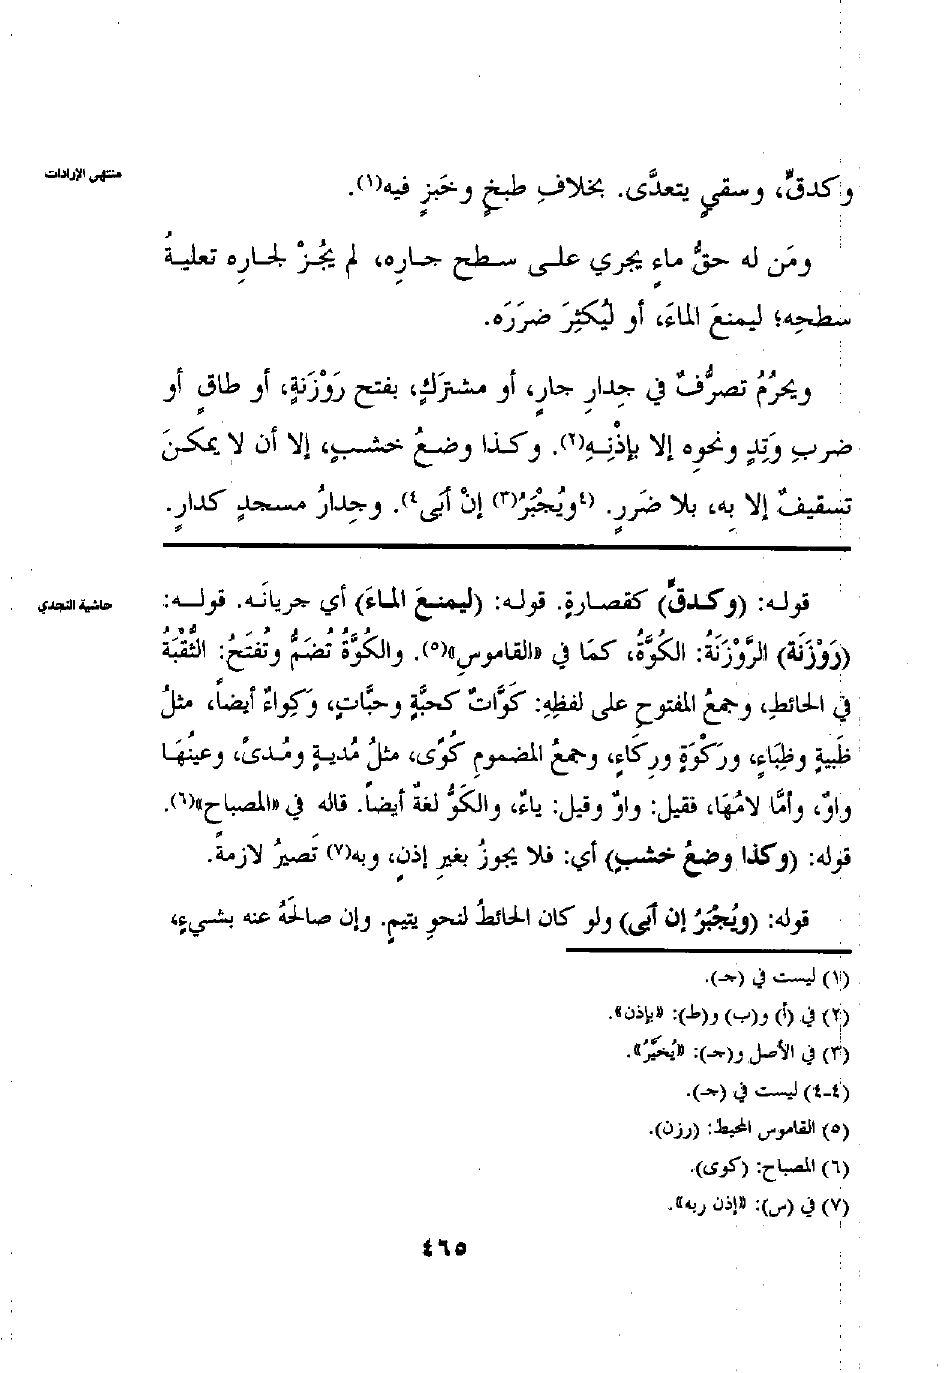 منتهى الإرادات
وكدقٍّ، وسقيٍ يتعدَّى. بخلافِ طبخٍ وخَبزٍ فيه(١).
ومَن له حقُّ ماءٍ يجري على سطح جارِه، لم يجُزْ لجارِه تعليةُ
سطحِه؛ ليمنعَ الماءَ، أو ليُكثِرَ ضرَرَه.
ويحرُمُ تصرُّفٌ في جِدارِ جارٍ، أو مشترَكٍ، بفتحِ رَوْزَنةٍ، أو طاقٍ أو
ضربِ وَتِدٍ ونحوِه إلا بإذْنِهِ(٢). وكذا وضعُ خشبٍ، إلا أن لا يمكنَ
تسقيفٌ إلا بِه، بلا ضَررٍ. (٤ويُجْبَرُ(٣) إنْ أبَى٤). وجِدارُ مسجدٍ كدارٍ.
حاشية النجدي
قوله: (وكدقٍّ) كقصارةٍ. قوله: (ليمنعَ الماءَ) أي جريانَه. قوله:
(رَوْزَنَة) الرَّوْزَنَةُ: الكوَّةُ، كمَا في «القاموس»(٥). والكُوَّةُ تُضَمُّ وتُفتَحُ: الثُّقْبَةُ
في الحائطِ، وجمعُ المفتوحِ على لفظِهِ: كَوَّاتٌ كحبَّةٍ وحبَّاتٍ، وَكِواءٌ أيضاً، مثلُ
ظَبيةٍ وظِبَاءٍ، ورَكْوَةٍ ورِكَاءٍ، وجمعُ المضمومِ كُوًى، مثلُ مُديةٍ ومُدىً، وعينُهَا
واوٌ، وأمَّا لامُهَا، فقيل: واوٌ وقيل: ياءٌ، والكَوُّ لغةٌ أيضاً. قاله في «المصباح»(٦).
قوله: (وكذا وضعُ خشبٍ) أي: فلا يجوزُ بغيرِ إذنٍ، وبه(٧) تَصيرُ لازمةً.
قوله: (ويُجْبَرُ إن أبَى) ولو كان الحائطُ لنحوِ يتيمٍ. وإن صالحَهُ عنه بشيءٍ،
(١) ليست في (جـ).
(٢) في (أ) و(ب) و(ط): «بإذن».
(٣) في الأصل و(جـ): «يُخَيَّرُ».
(٤-٤) ليست في (جـ).
(٥) القاموس المحيط: (رزن).
(٦) المصباح: (كوى).
(٧) في (س): «إذن ربه».
٤٦٥